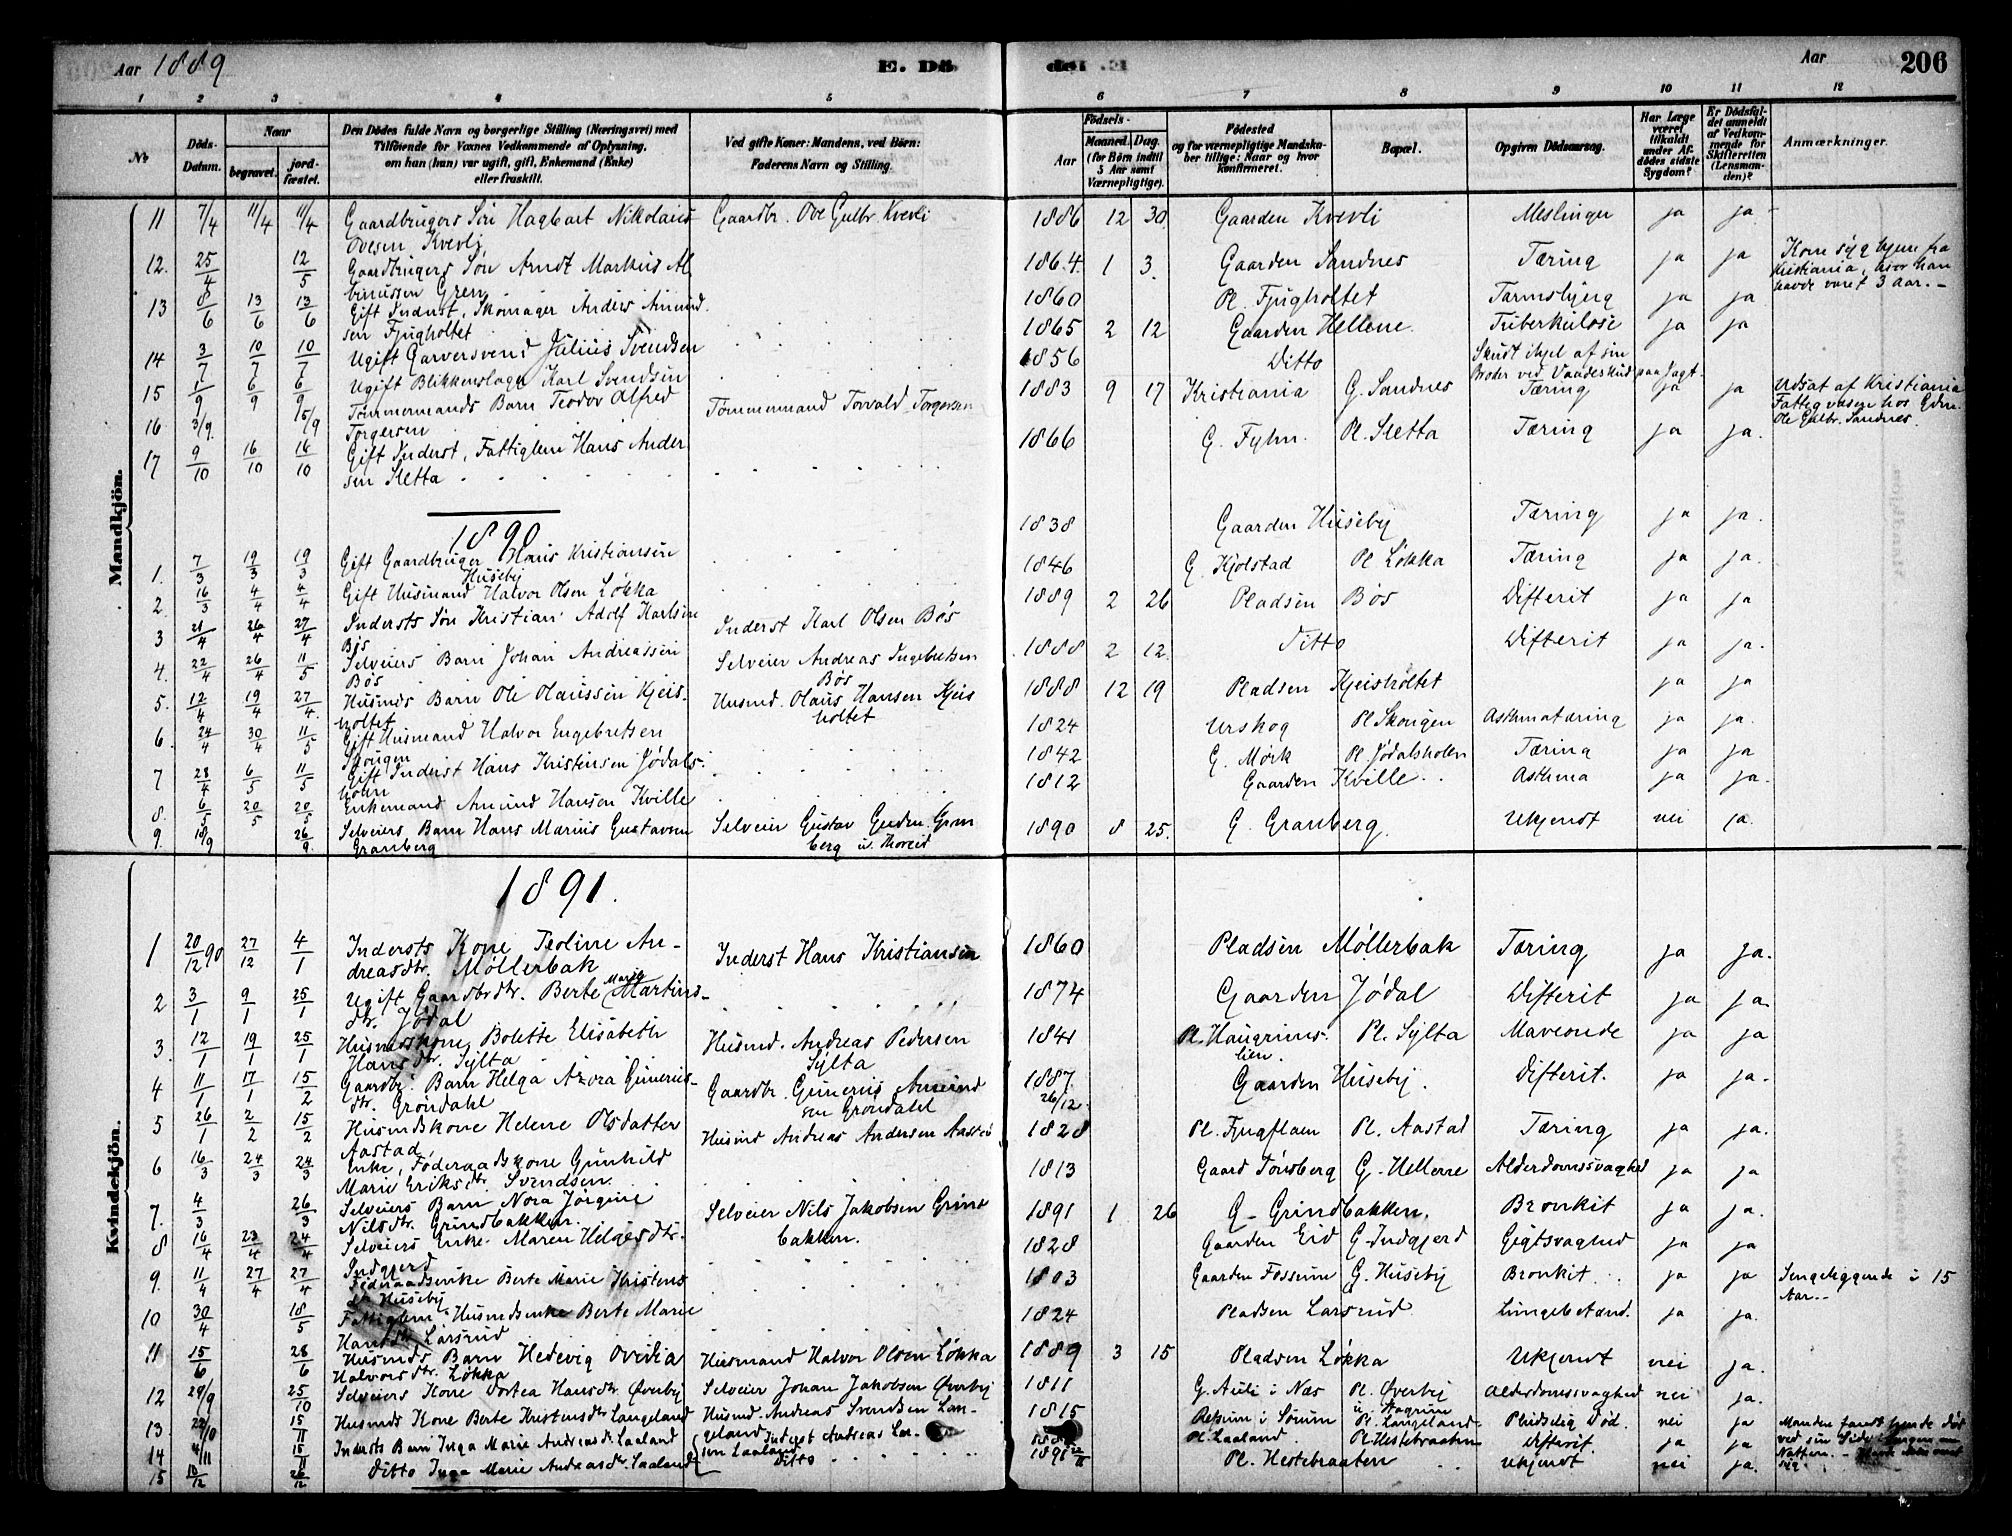 Aar 1889 E. Dö de. E. Aar 206
1 2 3 4 5 6 7 8 9 10 11 12
No Döds-Datum. Naar begravet. jordfæstet. Den Dödes fulde Navn og borgerlige Stilling (Næringsvei) med Tilföiende for Voxnes Vedkommende af Oplysning, om han (hun) var ugift, gift, Enkemand (Enke) eller fraskilt. Ved gifte Koner: Mandens, ved Börn: Faderens Navn og Stilling. Födsels- Aar Maaned. Dag. (for Börn indtil 5 Aar samt Værnepligtige). Födested og for værnepligtige Mandskaber tillige: Naar og hvor konfirmeret. Bopæl. Opgiven Dödsaarsag. Har Læge været tilkaldt under Afdödes sidste Sygdom? Er Dödsfaldet anmeldt af Vedkommende for Skifteretten (Lensmanden)? Anmærkninger.
Mandkjön.
11 7/4 11/4 11/4 Gaardbrugers Sön Hagbart Nikolaius Ovesen Kvevli Gaardbr. Ove Gulbr. Kvevli 1886 12 30 Gaarden Kvevli Meslinger ja ja
12. 25/4 12/5 Gaardbrugers Søn Arndt Markus Albinussen Gren 1864 1 3. Gaarden Sandnes Tæring ja ja Kom syg hjem fra Kristiania, hvor han havde været 3 Aar.
13 8/6 13/6 13/6 Gift Inderst, Skomager Anders Amundsen Fjugholtet 1860 Pl. Fjugholtet Tarmslyng ja ja
14 3/7 10/7 10/7 Ugift Garversvend Julius Svendsen 1865 2 12 Gaarden Hellene Tuberkulose ja ja
15 1/9 6/9 6/9 Ugift Blikkenslager Karl Svendsen 1856 Ditto Skudt ihjel af sin Broder ved Vaadeskud paa Jagt.
16 3/9. 15/9 Tømmermands Barn Teodor Alfred Torgersen Tømmermand Torvald Torgersen 1883 9 17 Kristiania G. Sandnes Tæring ja ja Udsat af Kristiania Fattigvæsen hos Gdbr. Ole Gulbr. Sandnes.
17 9/10 16/10 16/10 Gift Inderst, Fattiglem Hans Andersen Sletta 1866 G. Fyhn. Pl. Sletta Tæring ja ja.
1890
1. 7/3 19/3 19/3 Gift Gaardbruger Hans Kristiansen Huseby 1838 Gaarden Huseby Tæring ja ja.
2. 16/3 4/4 4/4 Gift Husmand Halvor Olsen Løkka 1846 G. Kjolstad Pl Løkka Tæring ja ja.
3 21/4 26/4 27/4 Indersts Søn Kristian Adolf Karlsen Bøs Inderst Karl Olsen Bøs 1889 2 26 Pladsen Bøs Difterit ja ja
4. 22/4 26/4 11/5 Selveiers Barn Johan Andreassen Bøs Selveier Andreas Ingebretsen Bøs 1888 2 12. Ditto Difterit ja ja.
5. 12/4 19/4 27/4. Husmds Barn Ole Olaussen Kjeisholtet Husmd. Olaus Hansen Kjeisholtet 1888 12 19 Pladsen Kjeisholtet ja ja
6 24/4 30/4 11/5 Gift Husmand Halvor Engebretsen Skougen 1824 Urskog Pl Skougen Asthmatæring ja ja.
7 28/4 6/5 11/5 Gift Inderst Hans Kristensen Jødalsholm 1842 G. Mørk Pl. Jødalsholm Tæring ja ja
8. 6/5 20/5 20/5 Enkemand Amund Hansen Kville 1812 Gaarden Kville Asthma ja ja.
9. 18/9 26/9. Selveiers Barn Hans Marius Gustavsen Granberg Selveier Gustav Gudm. Granberg u. Thoreid 1890 8 25. G. Granberg. Ukjendt nei ja.
1891.
Kvindekjön.
1 20/12 90 27/12 4/1 Indersts Kone Teoline Andreasdtr. Møllerbak Inderst Hans Kristiansen 1860 Pladsen Møllerbak Tæring ja ja.
2 3/1 9/1 25/1 Ugift Gaardbrdtr. Berte Marie Martinsdtr. Jødal 1874 Gaarden Jødal Difterit ja ja
3. 12/1 19/1 25/1 Husmdskone Bolette Elisabeth Hansdtr. Sylta Husmd. Andreas Pedersen Sylta 1841 Pl. Haugrimslien. Pl. Sylta Mavonde ja ja
4 11/1 17/1 15/2 Gaardbr. Barn Helga Azora Gunerius-dtr. Grøndahl Gaardbr. Gunerius Amundsen Grøndahl 1887 26/12. Gaarden Huseby. Difterit. ja ja
5 26/1 2/2 15/2 Husmdskone Helene Olsdatter Aastad Husmd Andreas Andersen Aastad 1828 Pl. Fjugflaen Pl. Aastad Tæring ja ja.
6 16/3 24/3 24/3 Enke, Føderaadskone Gunhild Marie Eriksdtr. Svendsen 1813 Gaard Tønsberg G. Hellerne Alderdomssvaghed ja ja
7. 4/3 26/3 Selveiers Barn Nora Jørgine Nilsdtr. Grindbakken. Selveier Nils Jakobsen Grindbakken. 1891 1 26 G. Grindbakken. Bronkit ja ja.
8 16/4 23/4 24/4 Selveiers Enke Maren Helgesdtr. Indgjerd 1828 Gaarden Eid G. Indgjerd Gigtsvaghed ja ja
9. 11/4 27/4 27/4 Føderaadsenke Berte Marie Kristensdtr Huseby 1803 Gaarden Fossum G. Huseby Bronkit ja ja Sengeliggende i 15 Aar.
10 30/4 18/5 Fattiglem Husmdsenke Berte Marie Hansdtr Larsrud 1824 Pladsen Larsrud Lungebetænd. ja ja.
11 15/6 28/6 Husmds Barn Hedevig Ovidia Halvorsdtr. Løkka Husmand Halvor Olsen Løkka 1889 3 15 Pladsen Løkka Ukjendt nei ja.
12 29/9 25/10 Selveiers Kone Dortea Hansdtr. Øverby Selveier Johan Jakobsen Øverby 1811 G. Auli i Næs Pl. Øverby Alderdomssvaghed nei ja.
13. 22/10 15/11 Husmds Kone Berte Kristensdtr Langeland Husmd. Andreas Svendsen Langeland 1815 i Sørum Pl. Langeland Pludselig Død. nei ja Manden fandt hende død ved sin Side i Sengen om Natten.
14. 4/11 15/11 Indersts Barn Inga Marie Andreasdtr. Laaland Inderst Andreas Larsen Laaland Pl. Laaland Pl. Hestebraaten Difterit. ja ja
15 10/12 26/12 Ditto Inga Marie Andreasdtr. Laaland Ditto 1891 Pl. Hestebraaten Ukjendt nei ja.